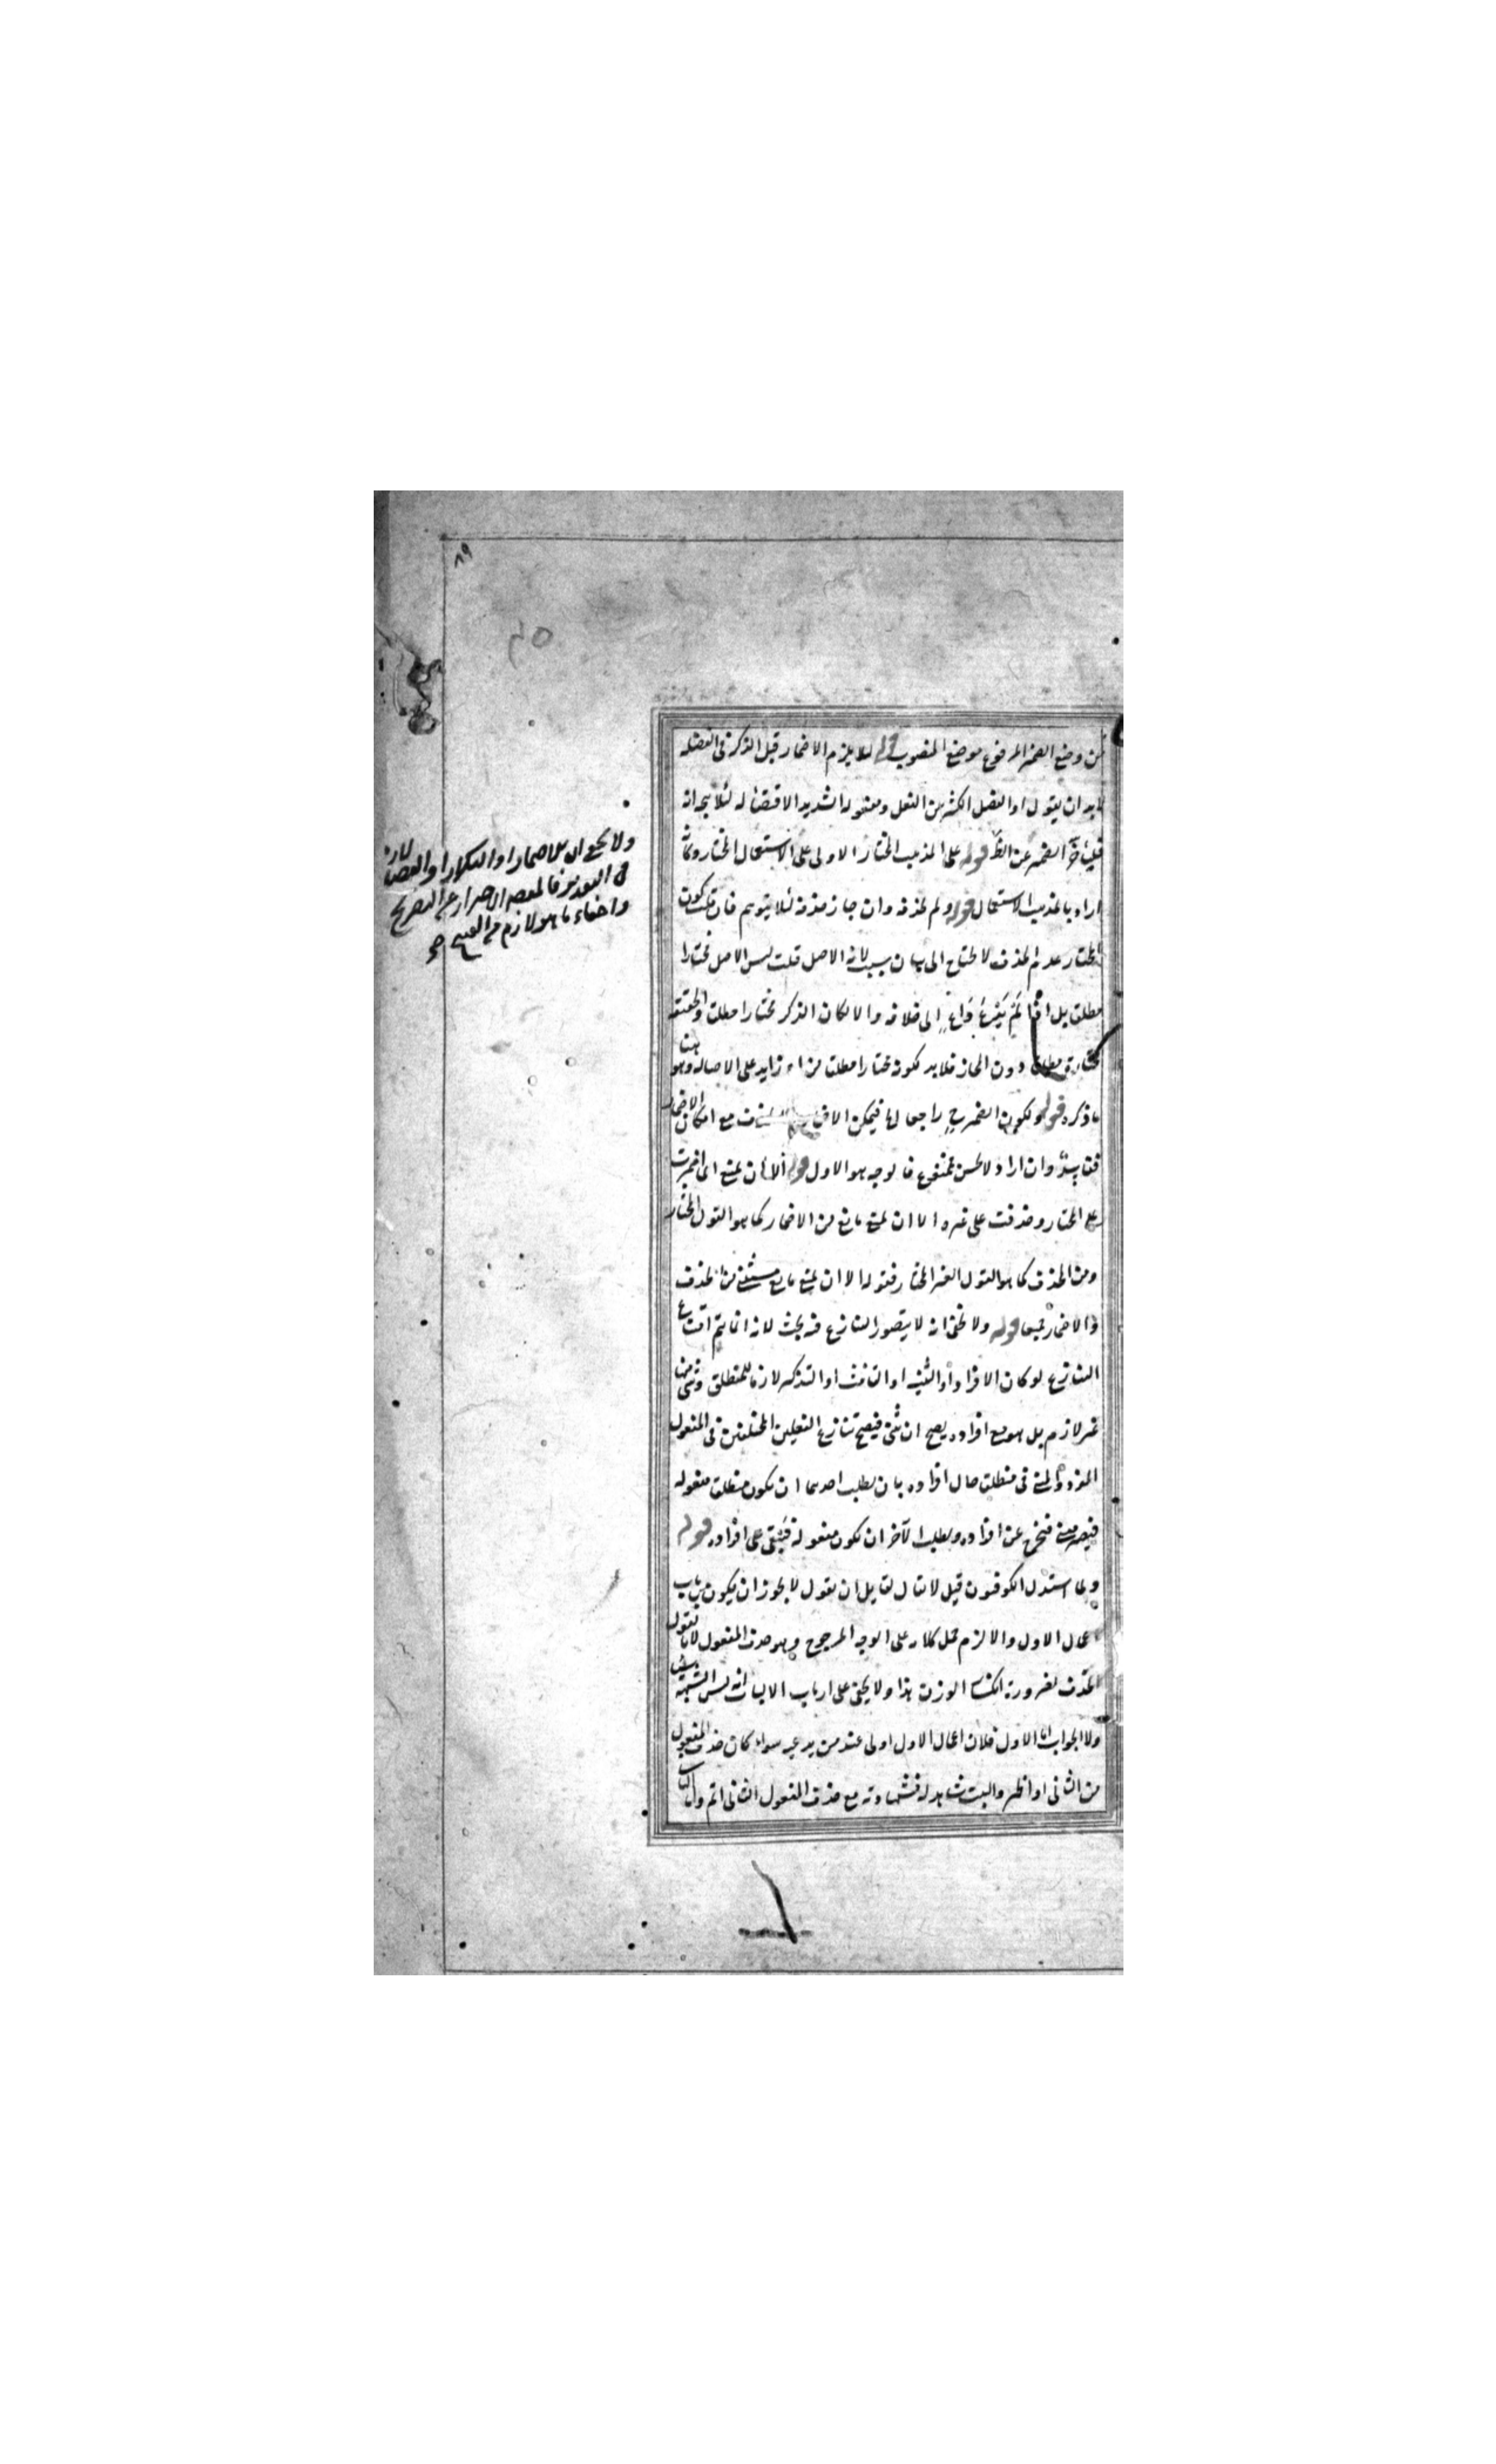 ٨٩
من وضع الضمير المرفوع موضع المنصوب قوله لئلا يلزم الاضمار قبل الذكر في الفضلة
لا بد ان يقول او الفصل الكثير بين الفعل ومفعوله الشديد الاقتضاء له لئلا يتجه انه
فليتأخر الضمير عن الظ قوله على المذهب المختار الاولى على الاستعمال المختار وكأنه
اراد بالمذهب الاستعمال قوله ولم تحذفه وان جاز حذفه لئلا يتوهم فان قلت كون
المختار عدم الحذف لا يحتاج الى بيان سبب لانه الاصل قلت ليس الاصل مختارا
مطلقا بل اذا لم يدع داع الى خلافه والا لكان الذكر مختارا مطلقا والحقيقة
مختارة مطلقا دون المجاز فلا بد لكونه مختارا مطلقا من امر زايد على الاصالة وهو هنا
ما ذكره قوله ولكون الضمير راجعا لها فيمكن مع امكان الاضمار
وان اراد لا يحسن فالوجه هو الاول قوله الا ان يمنع اي اضمرت
على المختار وحذفت على غيره الا ان يمنع مانع من الاضمار كما هو القول المختار
ومن الحذف كما هو القول الغير المختار فقوله الا ان يمنع مانع مستثنى من الحذف
والاضمار جميعا قوله ولا يخفى انه لا يتصور التنازع فيه بحث لانه انما يتم امتناع
التنازع لو كان الافراد او التثنية او التانيث او التذكير لازما للمنطلق وشي منها
غير لازم بل هو مع افراده يصح ان يثنى فيصح تنازع الفعلين المختلفين في المفعول
المفرد والمثنى في منطلق حال افراده بان يطلب احدهما ان يكون منطلق مفعوله
فيصير مثنى فيخرج عن افراده ويطلب الآخر ان يكون مفعوله فيبقى على افراده قوله
ولما استدل الكوفيون قيل لا يقال لقايل ان يقول لا يجوز ان يكون من باب
اعمال الاول والا لزم حمل كلامه على الوجه المرجوح وهو حذف المفعول لانا نقول
الحذف لضرورة الوزن هذا ولا يخفى على ارباب الالباب انه ليس الشبهة بشئ
ولا الجواب اما الاول فلان اعمال الاول اولى عند من يدعيه سواء كان حذف المفعول
من الثاني او اظهر والبيت شاهد له فشهادته مع حذف المفعول الثاني اتم واما
ولا يخفى ان
واخفاء ما هو لازم من